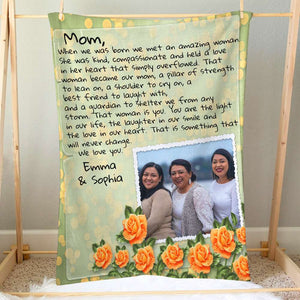 Mom,
When we was born we met an amazing woman.
She was kind, compassionate and held a love
in her heart that simply overflowed. That
woman became our mom, a pillar of strength
to lean on, a shoulder to cry on, a
best friend to laugh with,
and a guardian to shelter we from any
storm. That woman is you. You are the light
in our life, the laughter in our smile and
the love in our heart. That is something that
will never change.
We love you.
Emma
& Sophia